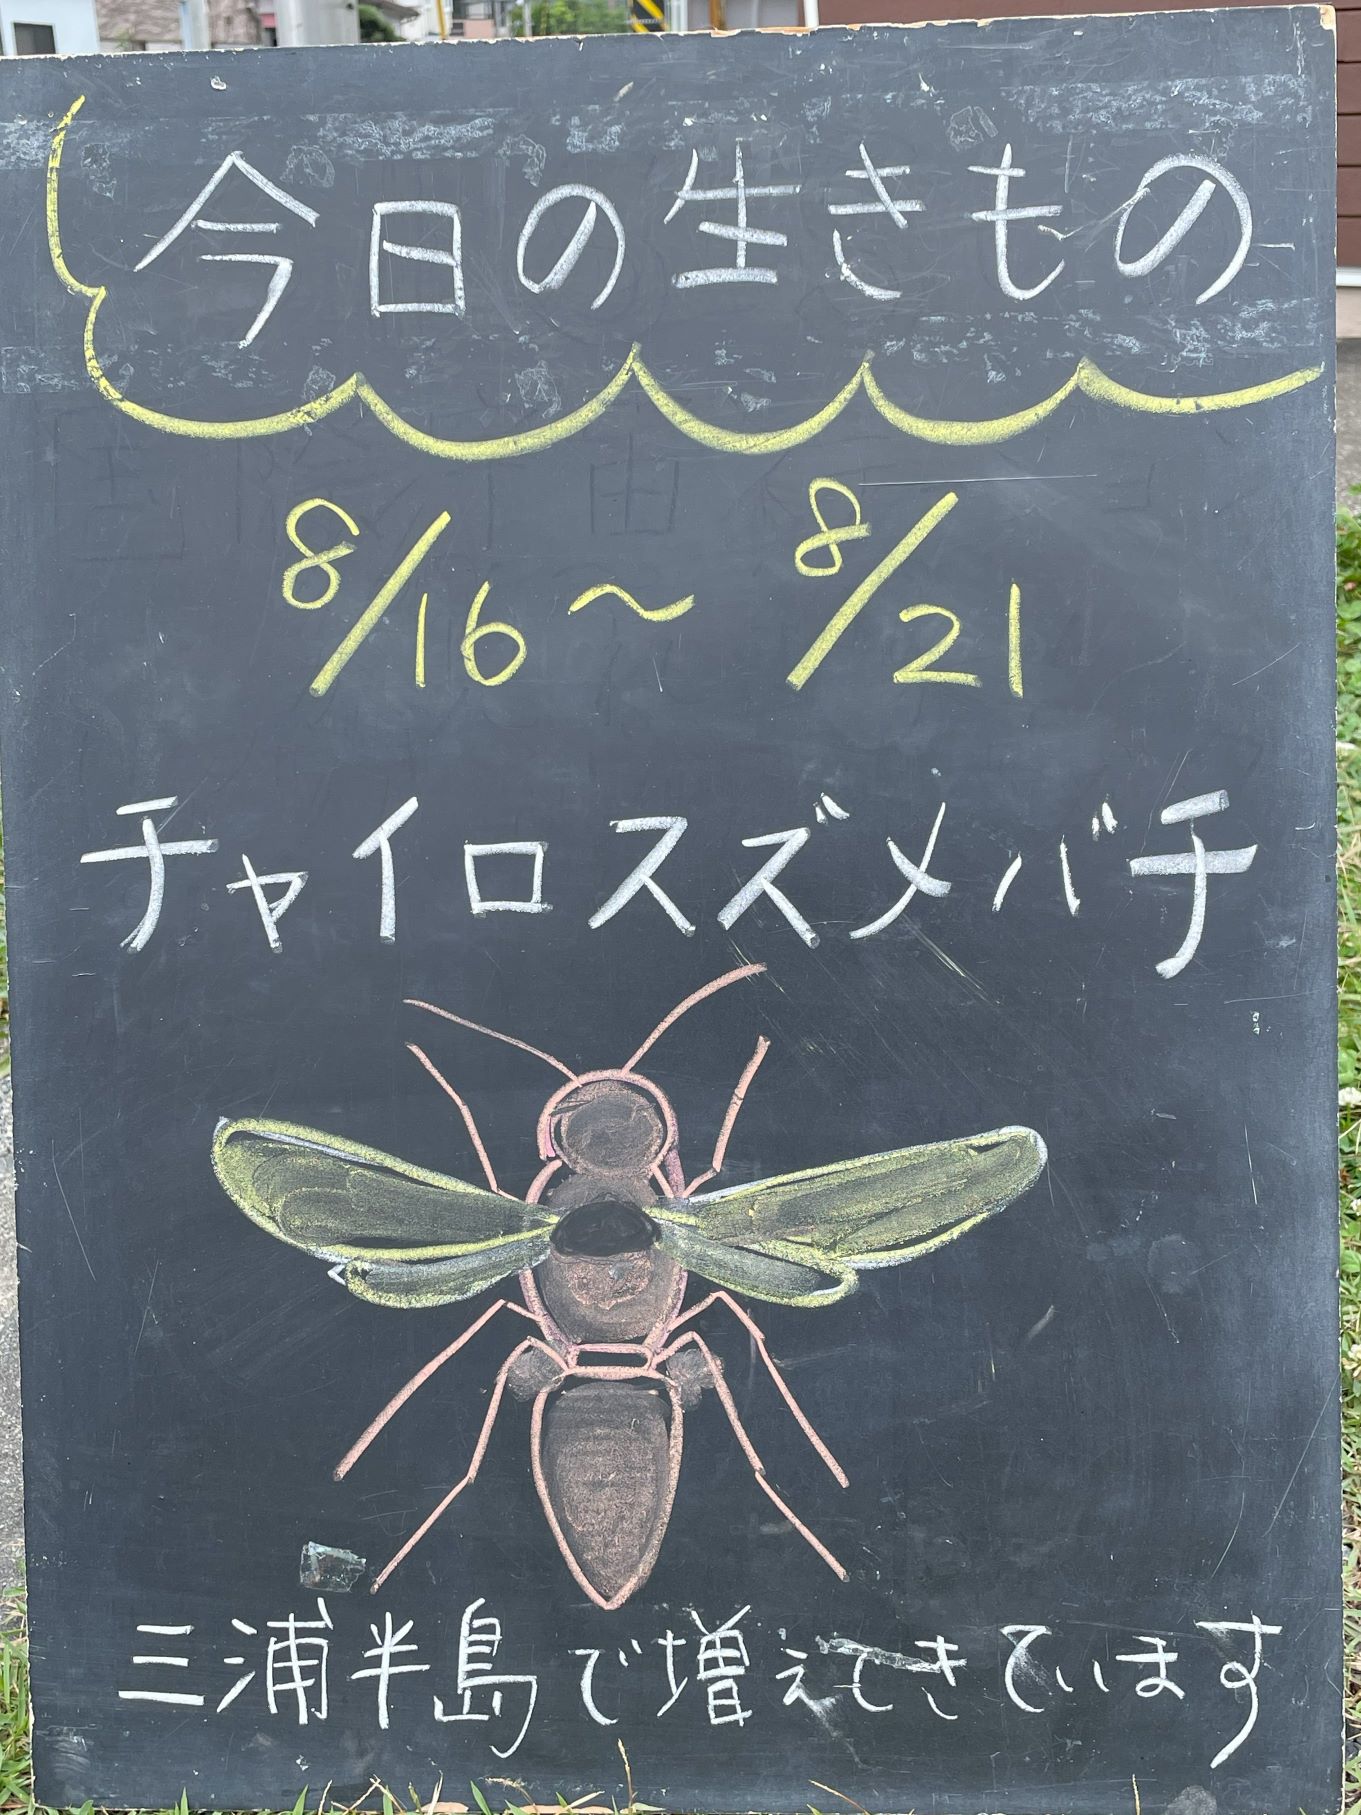 今日の生きもの
8/16〜8/21
チャイロスズメバチ
三浦半島で増えてきています